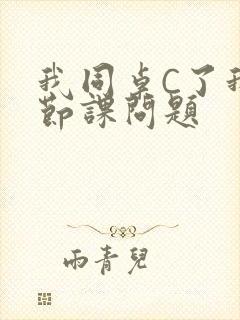 我同卓C了我
節課問題
雨青兒